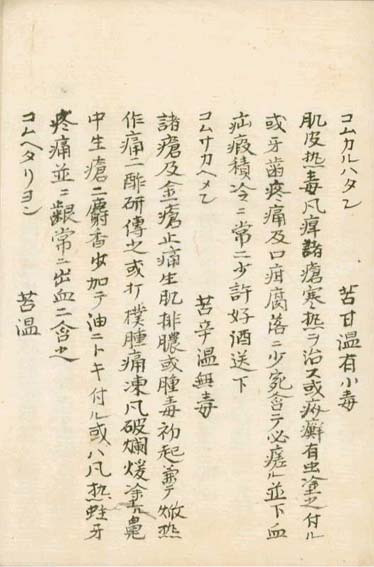 コムカルハタン 苦甘温有小毒
肌皮热毒凡痺諸瘡寒热ヲ治ス或疥癬有虫塗之付ル
或牙齒疼痛及口疳腐落ニ少宛含テ必瘥ル並下血
疝瘕積冷ニ常ニ少許好酒送下
コムサカヘメン 苦辛温無毒
諸瘡及金瘡止痛生肌排膿或腫毒初起並テ焮热
作痛ニ酢研傅之或打撲腫痛凍凡破爛煖塗ル鼻
中生瘡ニ麝香少加テ油ニトキ付ル或ハ凡热蛀牙
疼痛並ニ齦常ニ出血ニ含之
コムヘタリヨン 苦温